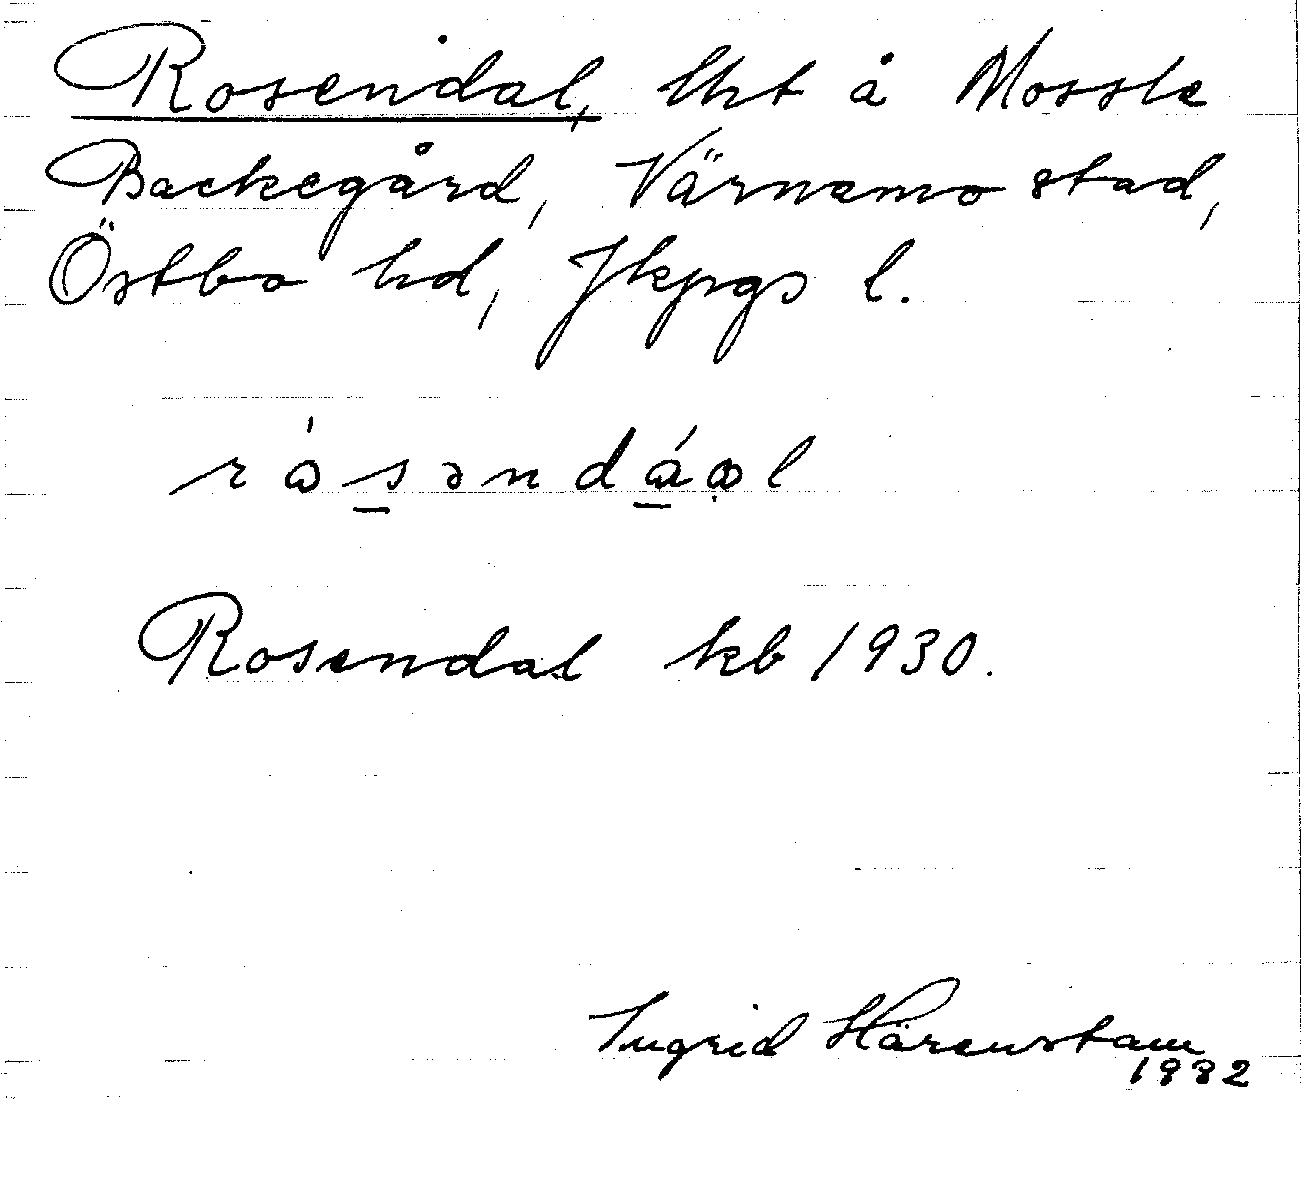 Rosendal, lht å Mossle
Backegård, Värnamo stad,
Östbo hd, Jkpgs l.
Rosendal kb 1930.
Ingrid Härenstam
1932